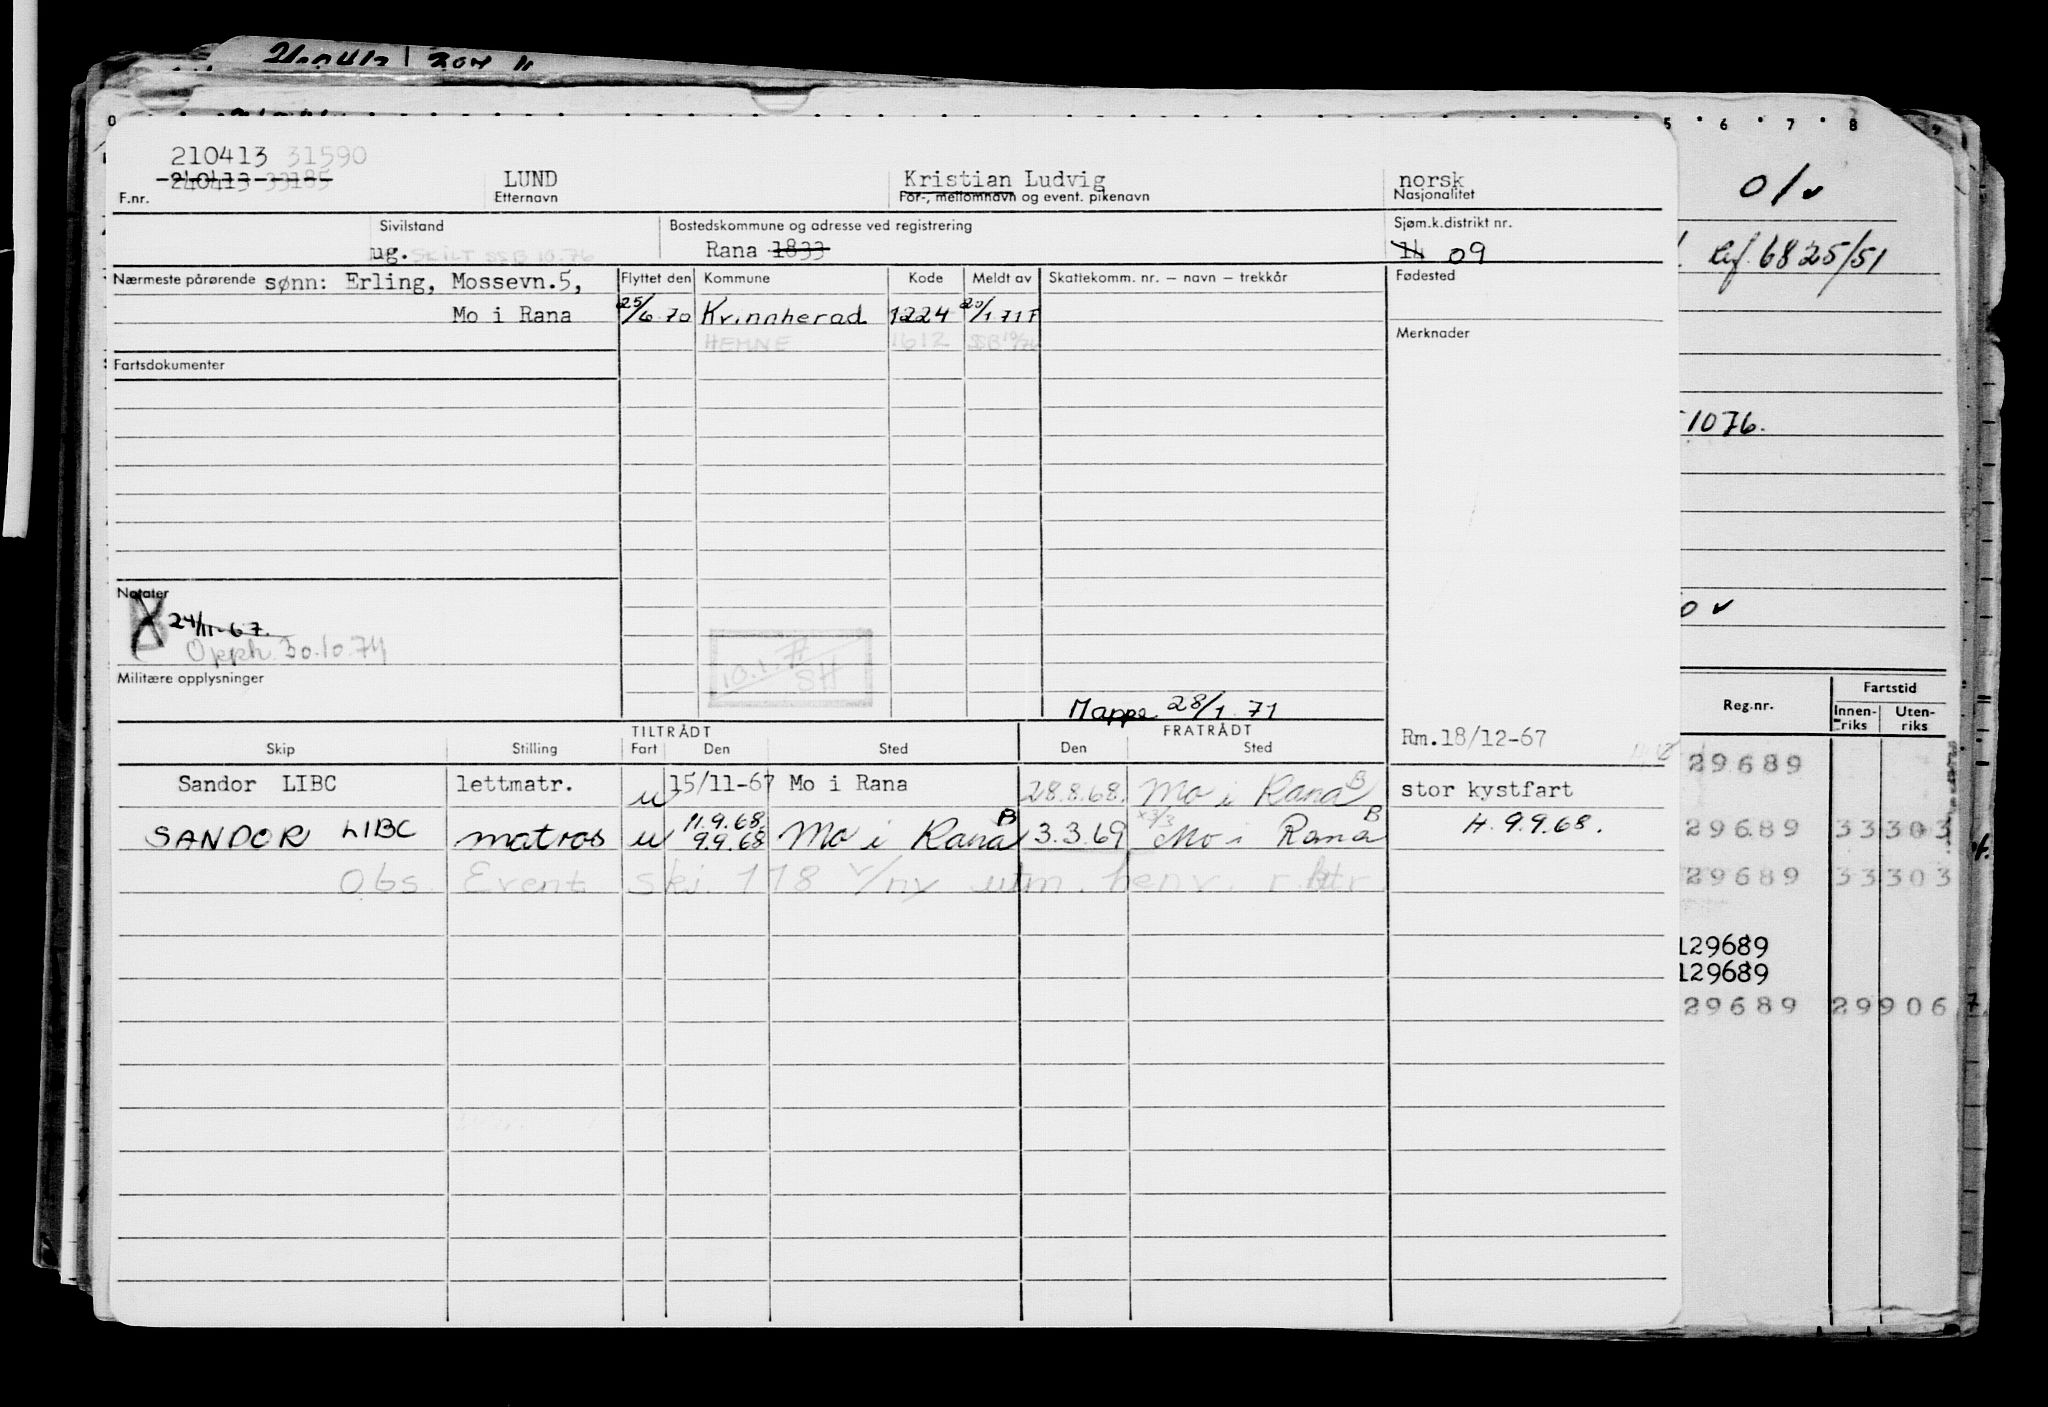 210413 31590
240413 33185
F.nr.
LUND
Etternavn
Kristian Ludvig
For-, mellomnavn og event. pikenavn
norsk
Nasjonalitet
Sivilstand
ug. SKILT SSB 10.76
Bostedskommune og adresse ved registrering
Rana 1833
Sjøm.k.distrikt nr.
14 09
Nærmeste pårørende sønn: Erling, Mossevn.5,
Mo i Rana
Flyttet den Kommune Kode Meldt av
25/6.70 Kvinnherad 1224 20/1.71 F
HEMNE 1612 SSB 10/76
Skattekomm. nr. – navn – trekkår
Fødested
Merknader
Fartsdokumenter
Notater
24/11-67.
Opph. 30.10.74
10.1.77
SH
Militære opplysninger
Mappe 28/1.71
TILTRÅDT FRATRÅDT
Skip Stilling Fart Den Sted Den Sted
Rm.18/12-67
Sandor LIBC lettmatr. u 15/11-67 Mo i Rana 28.8.68. Mo i Rana B stor kystfart
11.9.68
SANDOR LIBC matros u 9.9.68 Mo i Rana B 3.3.69 Mo i Rana B H. 9.9.68.
Obs. Event. skj. 118 v/ny utm. henv. r.ktr.
5 6 7 8
0/v
6825/51
1076.
Reg.nr. Fartstid
Innen-riks Uten-riks
29689
29689 33303
29689 33303
129689
129689
29689 29906 7